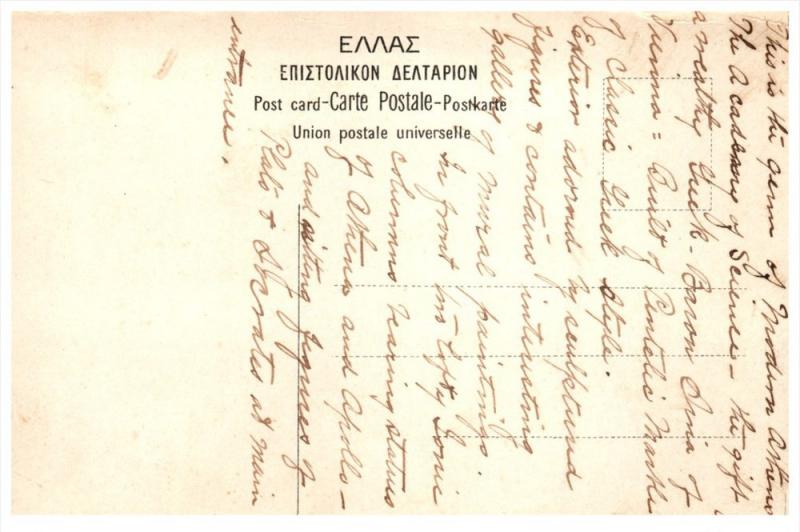 ΕΛΛΑΣ
ΕΠΙΣΤΟΛΙΚΟΝ ΔΕΛΤΑΡΙΟΝ
Post card-Carte Postale-Postkarte
Union postale universelle
This is the gem of Modern Athens
The Academy of Science - the gift
a wealthy Greek - Baron Sina of
Vienna = Built of Pentelic Marble
of Classic Greek style.
Exterior adorned by sculptured
figures & contains interesting
gallery of mural paintings.
In front two lofty Ionic
columns bearing statues
of Athena and Apollo -
and sitting figures of
Plato & Socrates at main
entrance.